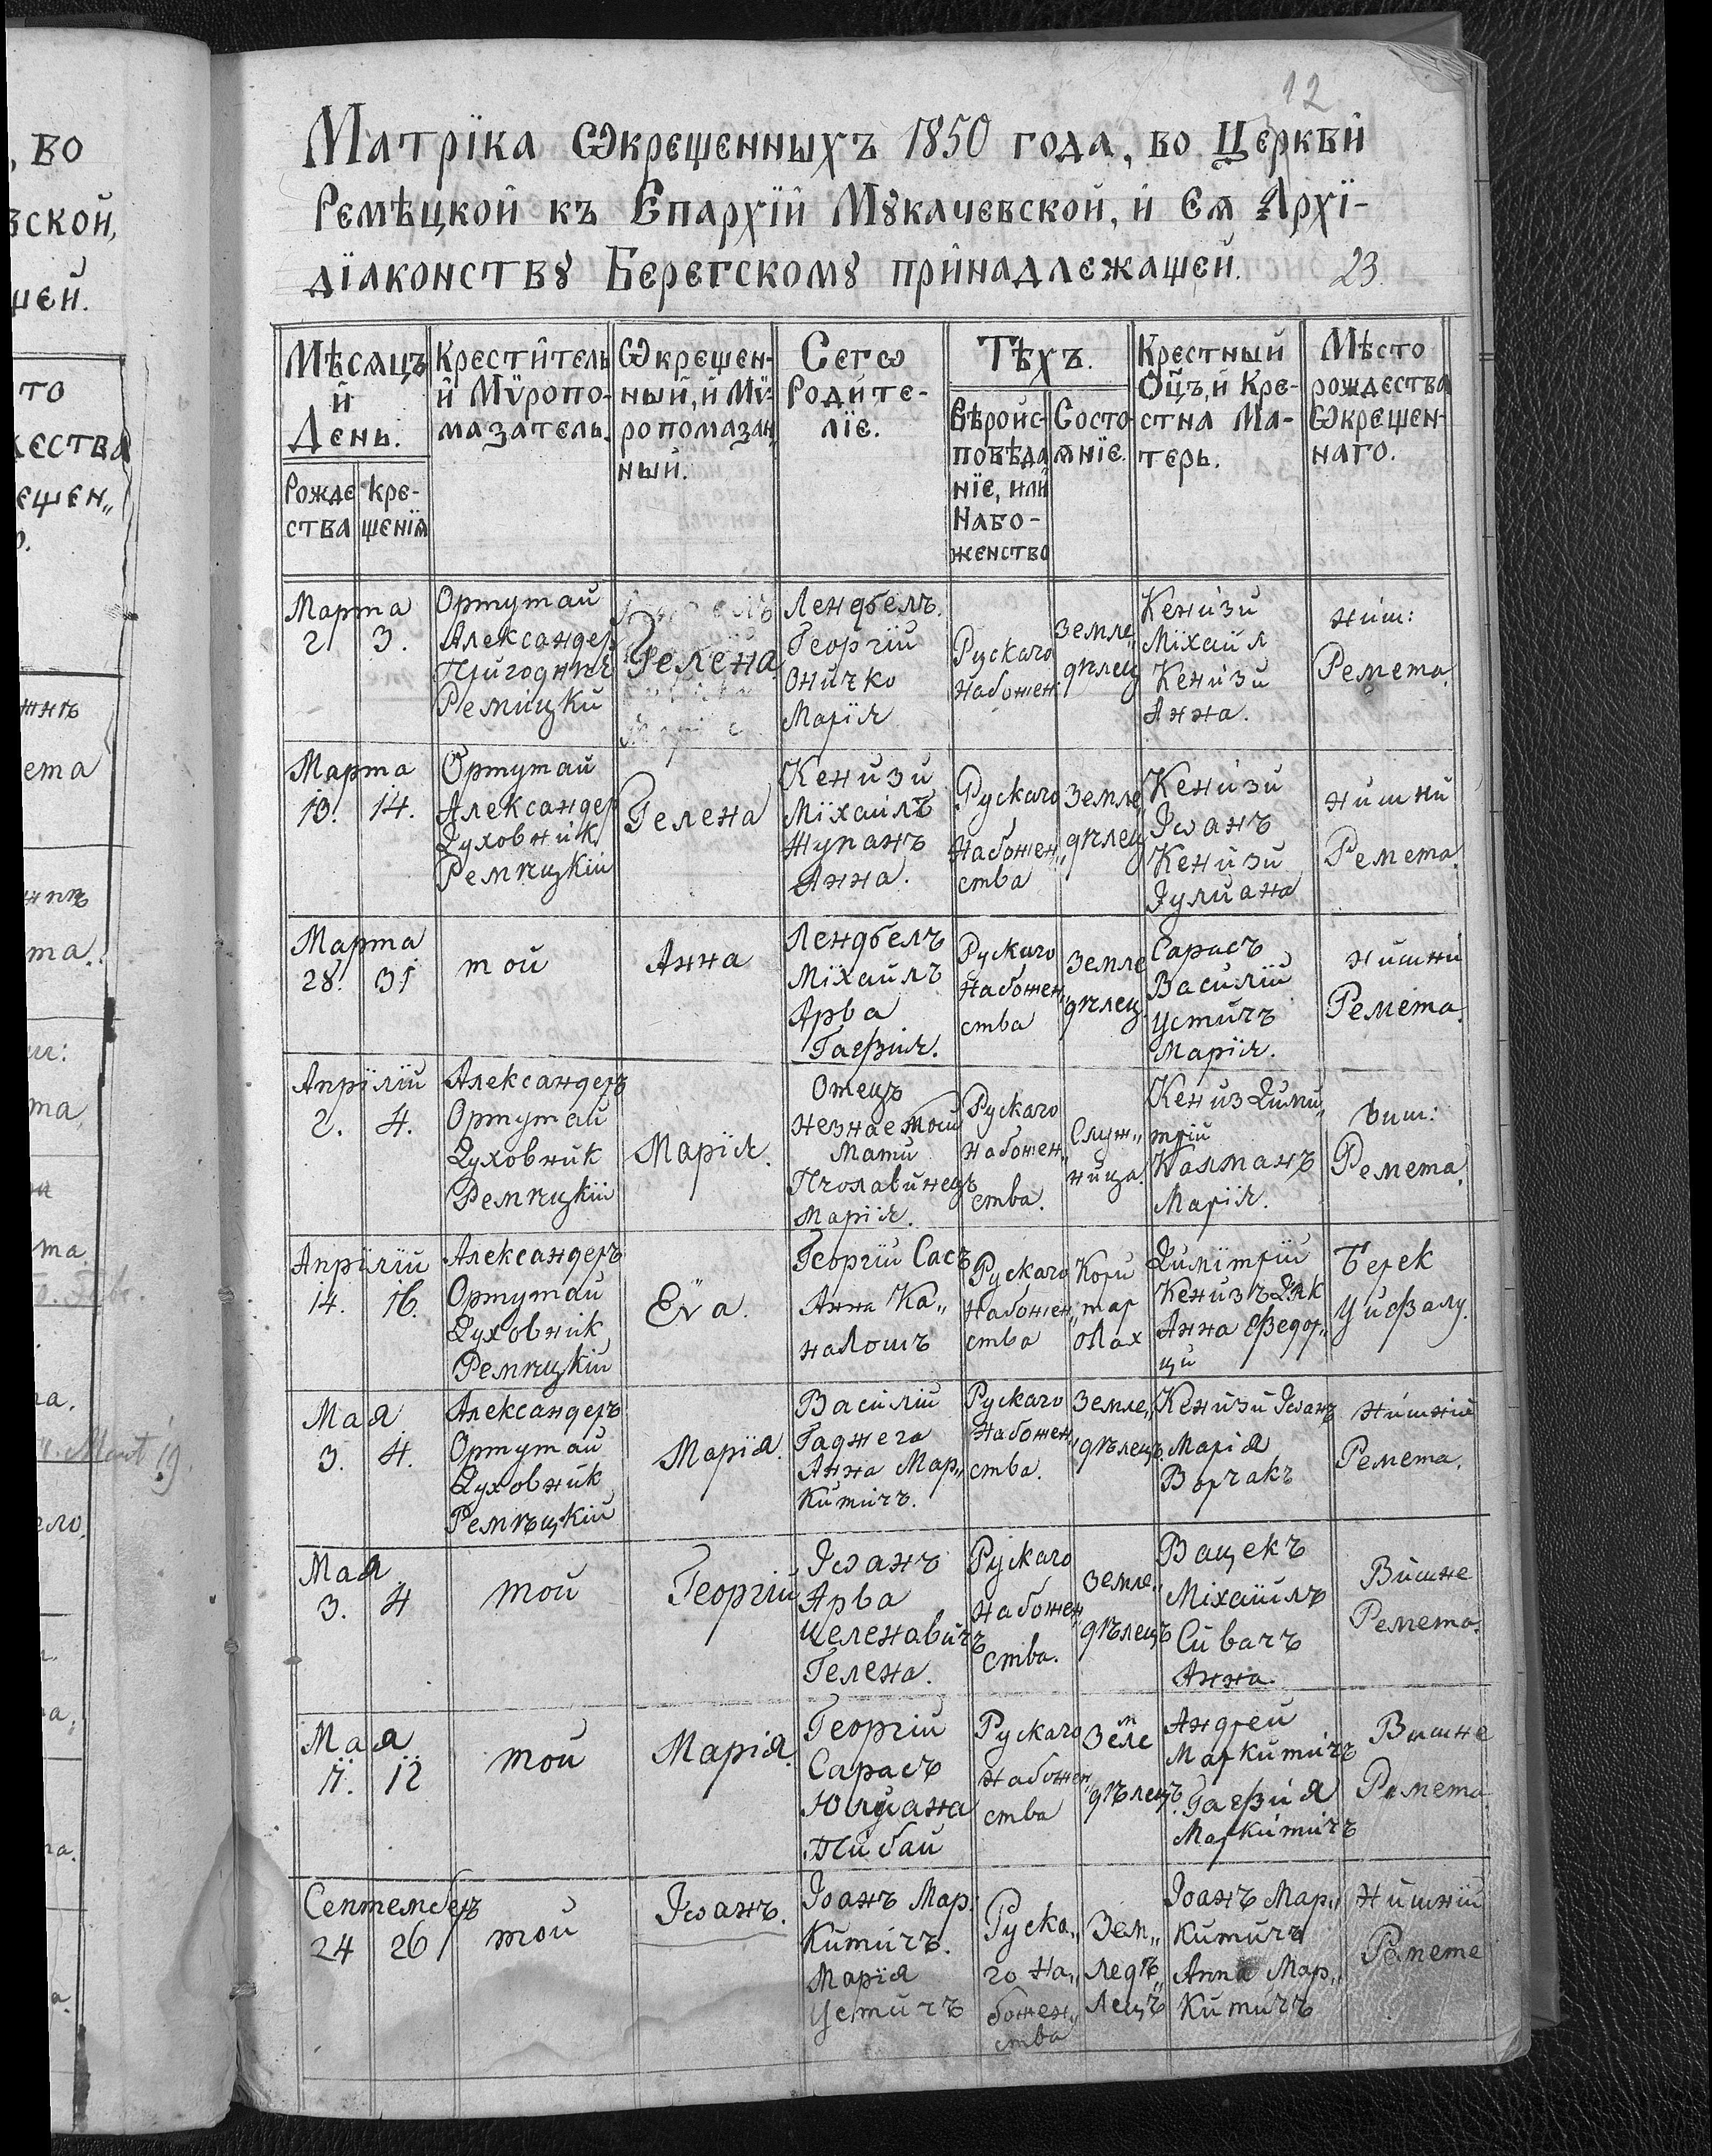 12
Матрїка Ѡкрещенныхъ 1850 года, во Церкви
Ремѣцкой къ Епархїи Мꙋкачевской, и Еѧ Архї-
дїаконствꙋ Берегскомꙋ принадлежащей. 23.
Мѣсяцъ и День.
Рождества
Крещенїѧ
Креститель и Мѵропомазатель.
Ѡкрещенный, и Мѵропомазанный.
Сегѡ Родителїе.
Тѣхъ.
Вѣроисповѣданїе, или Набоженство
Состоѧнїе.
Крестный Оц҃ъ, и Крестна Матерь.
Мѣсто рождества Ѡкрещеннаго.
Марта
2 3.
Ортутай
Александер
Ремицки
Гелена
Лендѣелъ
Георгїй
Оничко
Марїя
Рускаго
Набожен
Земле„
дѣлец
Кенизи
Міхаил
Кенизи
Анна.
ниш:
Ремета.
Марта
13. 14.
Ортутай
Александер
Духовник
Ремѣцкїй
Гелена
Кенизи
Міхаилъ
Жупанъ
Анна.
Рускаго
Набожен„
ства
Земле„
дѣлец
Кенизи
Іѡанъ
Кенизи
Іулиана
нишни
Ремета.
Марта
28. 31
той
Анна
Лендѣелъ
Міхаилъ
Арва
Гафия.
Рускаго
Набожен„
ства
Земле
дѣлец.
Сарасъ
Василїй
Устичъ
Марїя.
нишни
Ремета.
Апрїлїй
2. 4.
Александеръ
Ортутай
Духовник
Ремѣцкїй
Марїя.
Отецъ
незнаемый
Мати
Марїя.
Рускаго
набожен„
ства.
Служ„
ница.
Кениз Дими„
трїй
Калманъ
Марїя.
виш:
Ремета.
Апрїлїй
14. 16.
Александеръ
Ортутай
Духовник
Ремѣцкїй
Еѵа.
Георгїй Сасъ
Анна Ка„
налошъ
Рускаго
Набожен„
ства
Димітрїй
Кенизъ Дяк
Анна Федор„
ци
Берек
Уйфалу.
Мая
3. 4.
Александеръ
Ортутай
Духовник
Ремѣцкїй
Марїя.
Василїй
Гаджега
Анна Мар„
китичъ.
Рускаго
Набожен„
ства.
Земле„
дѣлецъ.
Кенизи Іѡанъ
Марія
Ворчакъ
нишнїй
Ремета.
Мая
3. 4
той
Георгїй
Іѡанъ
Арва
Целенавичъ
Гелена.
Рускаго
набожен„
ства.
земле„
дѣлецъ
Вацекъ
Міхаїилъ
Сивачъ
Анна.
Вишне
Ремета.
Мая
11. 12
той
Марія.
Георгїй
Сарасъ
Юлиана
Пибай
Рускаго
набожен„
ства
Земле
дѣлецъ.
Андрей
Маркитичъ
Гафия
Маркитичъ
Вишне
Ремета
Септемберъ
24 26
той
Іѡанъ.
Іоанъ Мар.
Китичъ.
Марїя
Устичъ
Руска„
го На„
божен„
ства
Зем„
ледѣ„
лецъ
Іоанъ Мар„
Китичъ
Anna Мар„
Китичъ
Нишнїй
Ремете